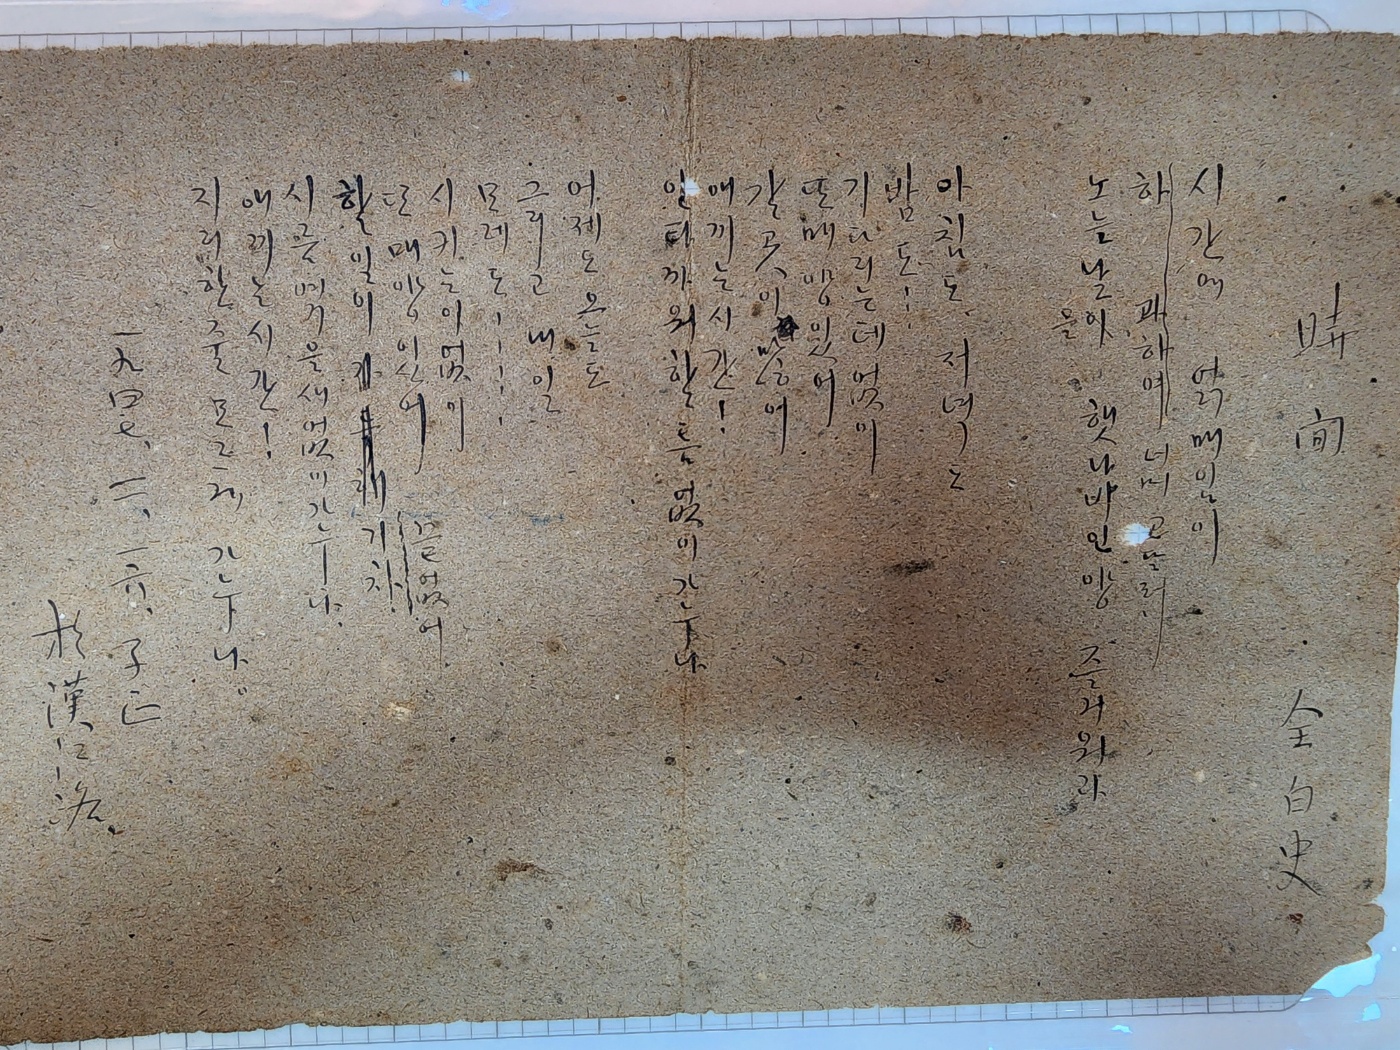 時間 全白史
시간에 얽매임이
하 과하여 너머 고달러
노는날이 햇나바인양 즐거워라
을
아침도 저녁도
밤도!
기다리는데 없이
또매양있어
갈곳이 있어
애끼는시간!
안타까워할틈없이가누나
어제도오늘도
그리고 내일
모레도!!!!
시키는이 없이
또매양있어
끝없어
할일이 기차
시름 여울새없이가누나
애끼는시간!
지리한줄 모르게 가누나。
一九四七、一六、子正
於漢江港